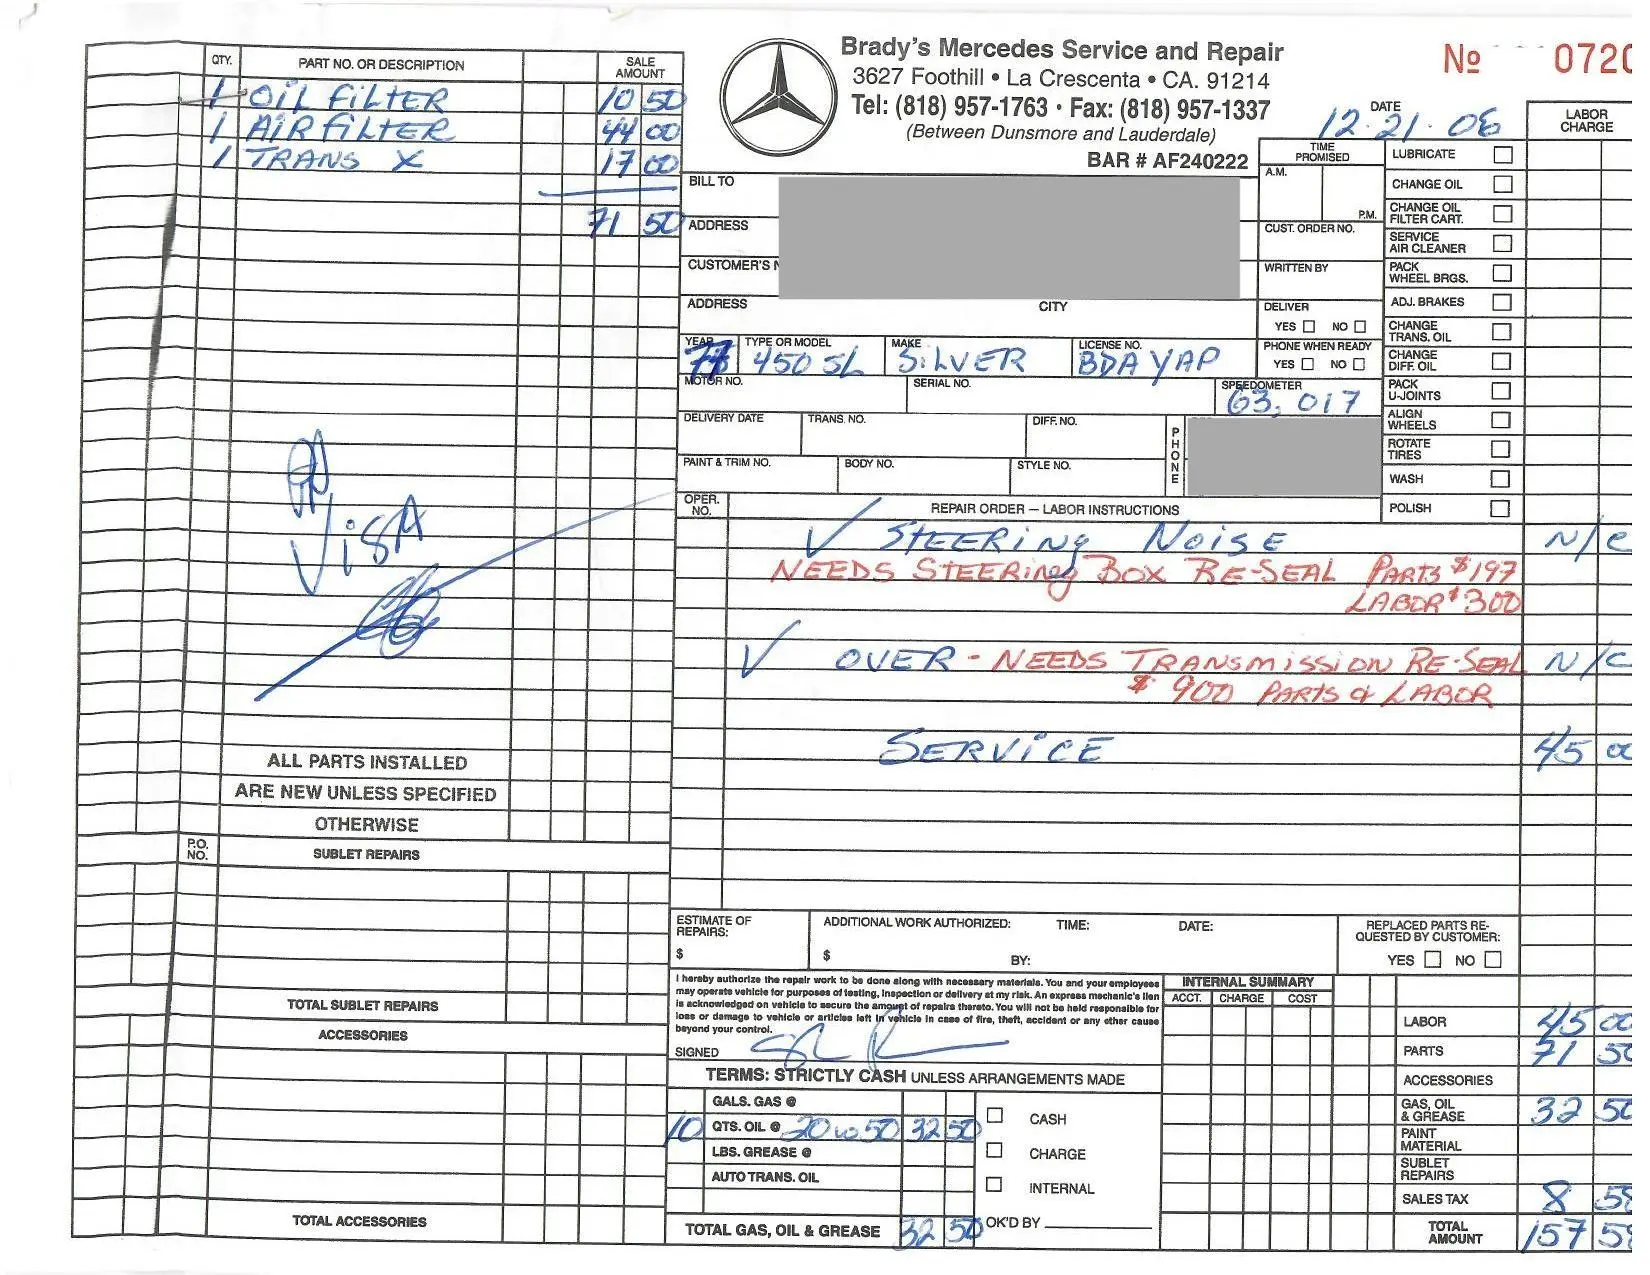 Brady's Mercedes Service and Repair
3627 Foothill • La Crescenta • CA. 91214
Tel: (818) 957-1763 • Fax: (818) 957-1337
(Between Dunsmore and Lauderdale)
BAR # AF240222
№ 0720
DATE
12·21·06
QTY. PART NO. OR DESCRIPTION SALE AMOUNT
1 OIL FILTER 10 50
1 AIR FILTER 44 00
1 TRANS X 17 00
71 50
PD
VISA
ALL PARTS INSTALLED
ARE NEW UNLESS SPECIFIED
OTHERWISE
P.O. NO. SUBLET REPAIRS
TOTAL SUBLET REPAIRS
ACCESSORIES
TOTAL ACCESSORIES
BILL TO
ADDRESS
CUSTOMER'S
ADDRESS CITY
TIME PROMISED
A.M.
P.M.
CUST. ORDER NO.
WRITTEN BY
DELIVER
YES NO
PHONE WHEN READY
YES NO
YEAR TYPE OR MODEL MAKE LICENSE NO.
450 SL SILVER BDA YAP
MOTOR NO. SERIAL NO. SPEEDOMETER
63,017
DELIVERY DATE TRANS. NO. DIFF. NO. PHONE
PAINT & TRIM NO. BODY NO. STYLE NO.
LABOR CHARGE
LUBRICATE
CHANGE OIL
CHANGE OIL FILTER CART.
SERVICE AIR CLEANER
PACK WHEEL BRGS.
ADJ. BRAKES
CHANGE TRANS. OIL
CHANGE DIFF. OIL
PACK U-JOINTS
ALIGN WHEELS
ROTATE TIRES
WASH
POLISH
OPER. NO. REPAIR ORDER — LABOR INSTRUCTIONS
√ STEERING NOISE N/C
NEEDS STEERING BOX RE-SEAL PARTS $197
LABOR $300
√ OVER - NEEDS TRANSMISSION RE-SEAL N/C
$ 900 PARTS & LABOR
SERVICE 45 00
ESTIMATE OF REPAIRS: $
ADDITIONAL WORK AUTHORIZED: TIME: DATE:
$ BY:
REPLACED PARTS REQUESTED BY CUSTOMER:
YES NO
I hereby authorize the repair work to be done along with necessary materials. You and your employees
may operate vehicle for purposes of testing, inspection or delivery at my risk. An express mechanic's lien
is acknowledged on vehicle to secure the amount of repairs thereto. You will not be held responsible for
loss or damage to vehicle or articles left in vehicle in case of fire, theft, accident or any other cause
beyond your control.
SIGNED
TERMS: STRICTLY CASH UNLESS ARRANGEMENTS MADE
GALS. GAS @
10 QTS. OIL @ 20 w 50 32 50
LBS. GREASE @
AUTO TRANS. OIL
TOTAL GAS, OIL & GREASE 32 50
CASH
CHARGE
INTERNAL
OK'D BY
INTERNAL SUMMARY
ACCT. CHARGE COST
LABOR 45 00
PARTS 71 50
ACCESSORIES
GAS, OIL & GREASE 32 50
PAINT MATERIAL
SUBLET REPAIRS
SALES TAX 8 58
TOTAL AMOUNT 157 58